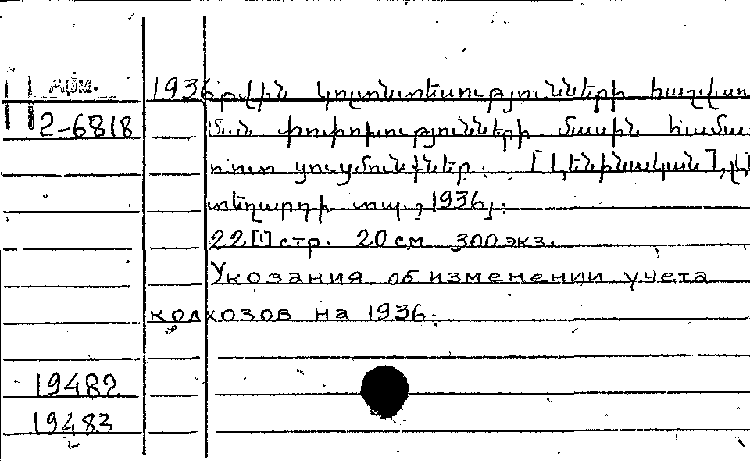 Арм.
II 2-6818
1936 թվին կոլտնտեսությունների հաշվառ
ման փոփոխությունների մասին համա
ռոտ ցուցմունքներ. [Լենինական],
տեղարդի տպ., 1936,:
22[1]стр. 20см 300экз.
Указания об изменении учета
колхозов на 1936.
19482
19483